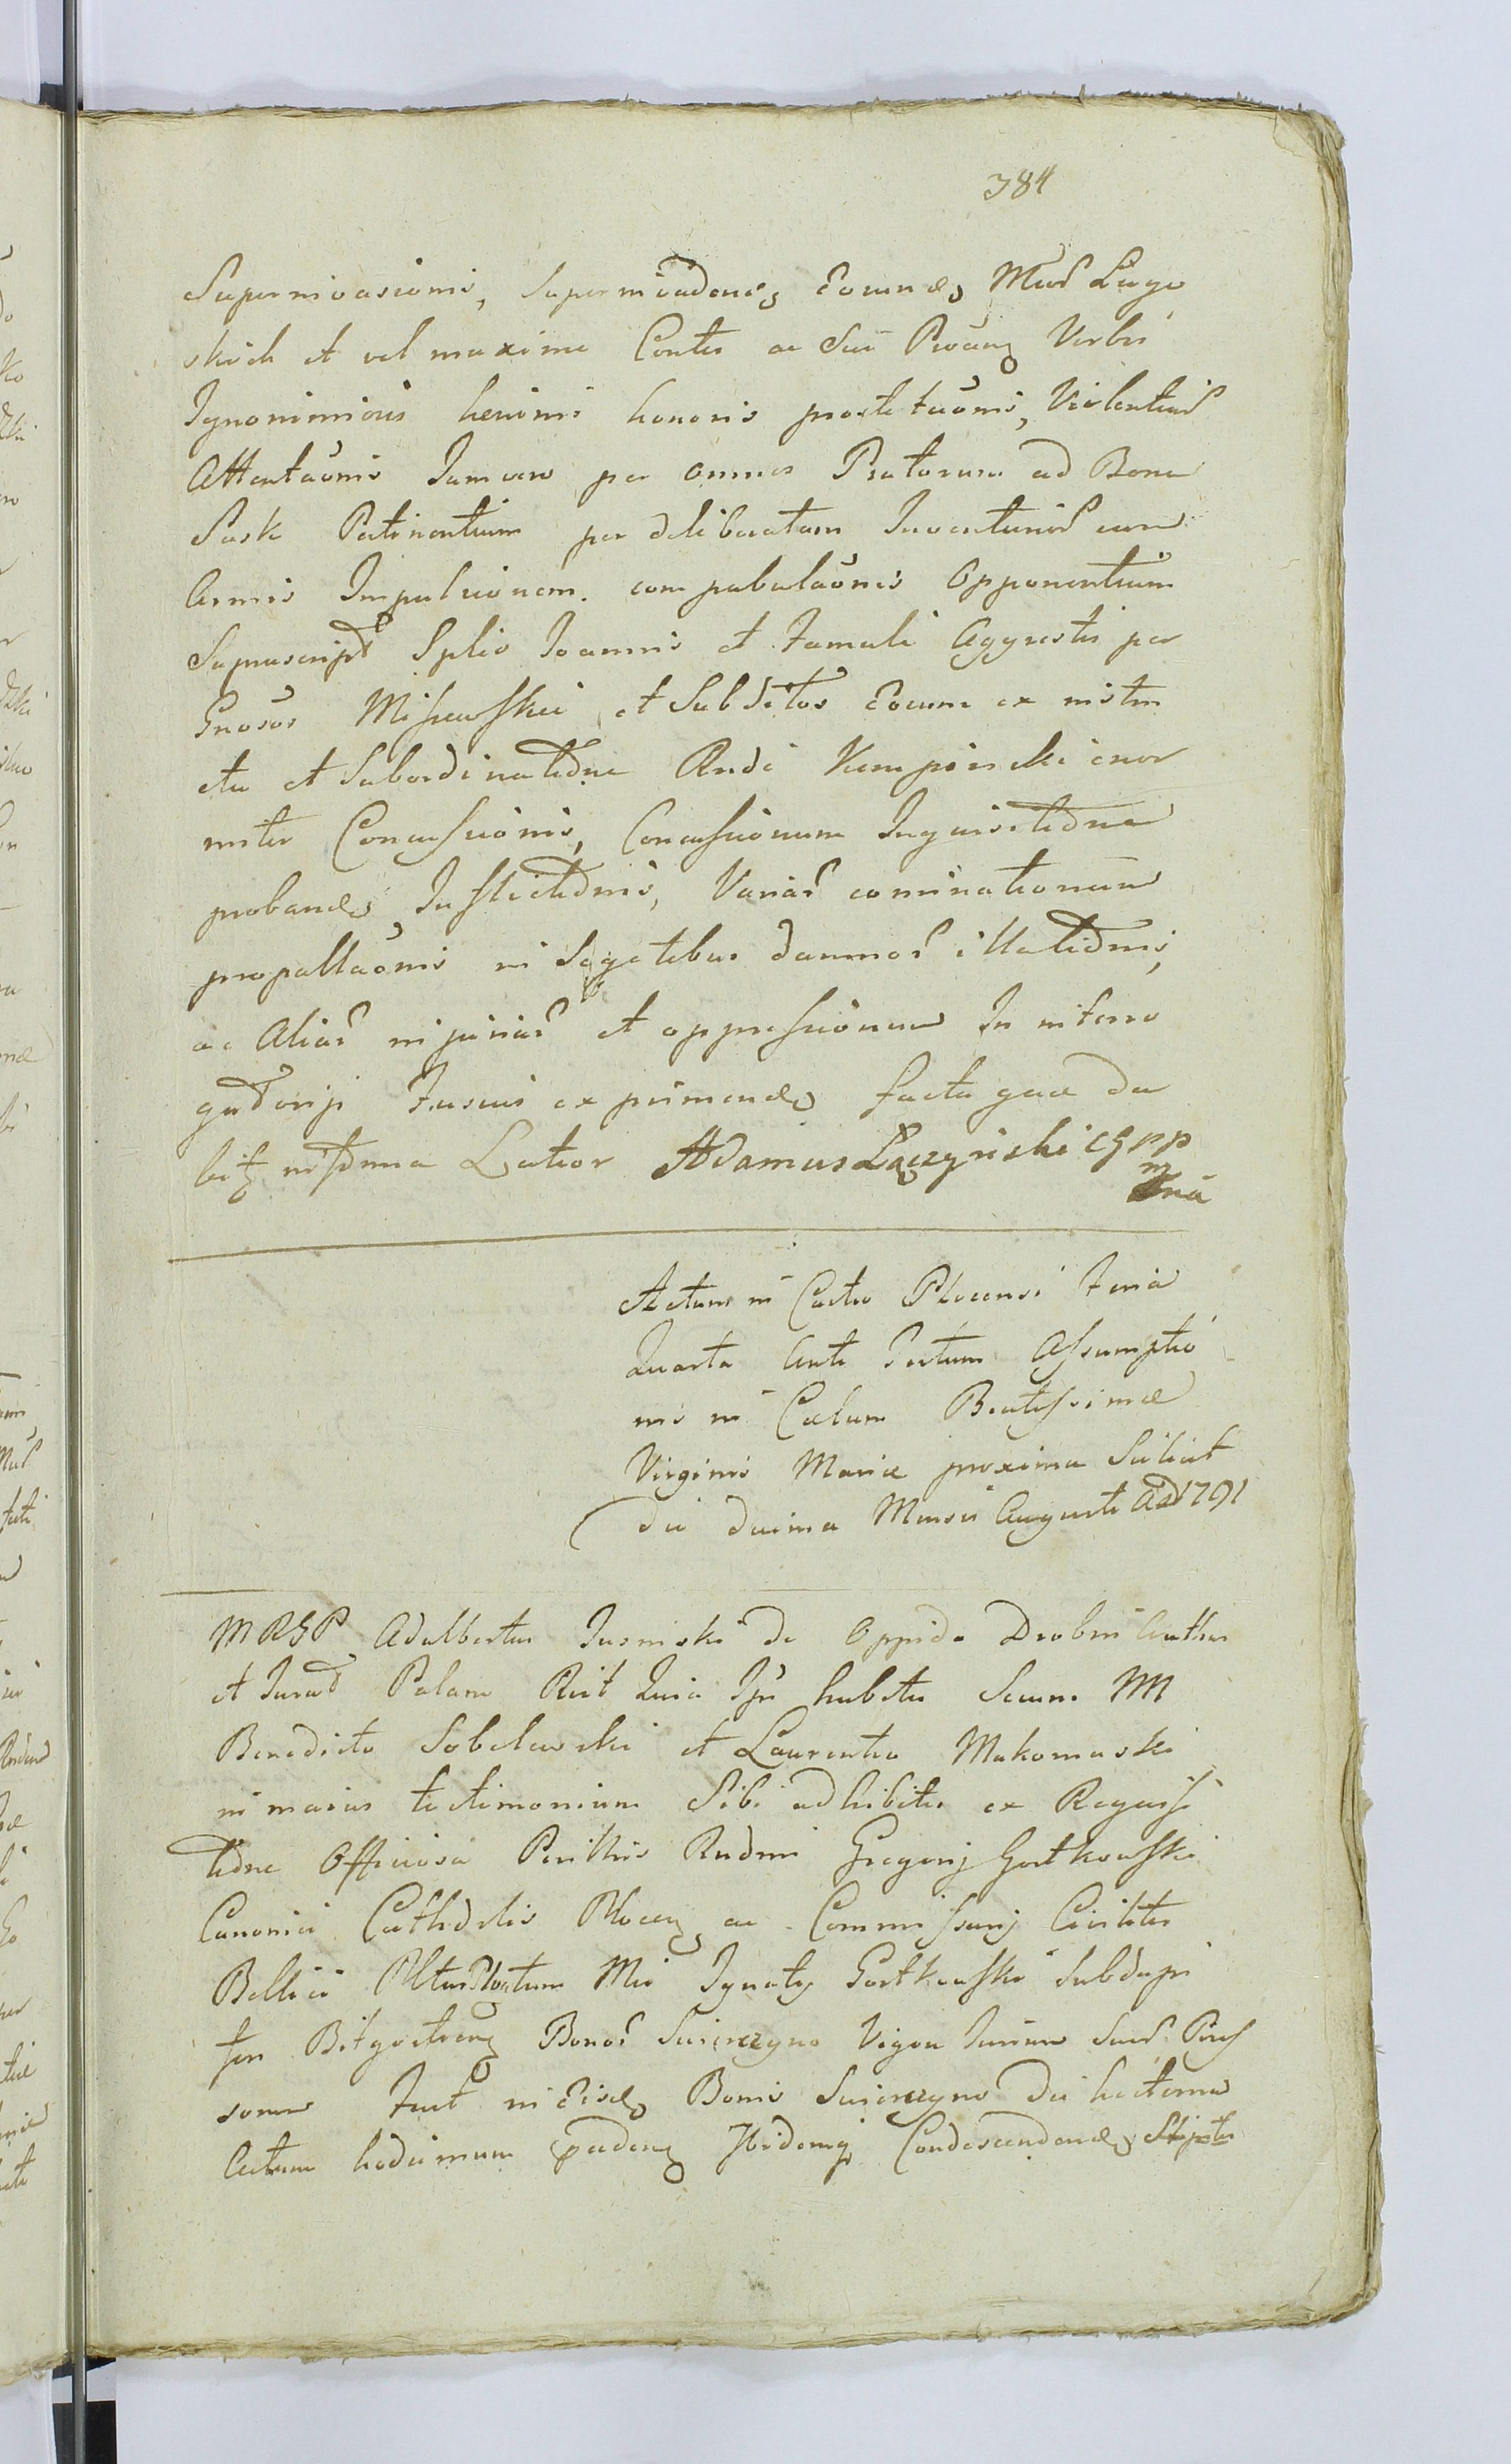 384
Superinvasionis, superinvadenes Eorundes Mur Lugo
skich et vel maxime Contes ac Sui Provang Verbis
Ignominiosis herinis honoris prostitutionis, Violentiar
Attentaonis Jamvero per omnes Pratorum ad Bona
Sosk Pertinentium per deliberatam Juventunis cum
Armis Impulsionem. compabulaonis Opponentium
Suprascript Splio Joannis et Famuli Aggrestis per
Gnosos Missewskie et Subditos Eorum ex instin
ctu et Subordinatidne Rndi Kempinski enor
miter Concussionis, Concussionum Inquisitidne
probandes Inflictidnis, Variar cominationum
propallaonis in Segetibus damnor illatidnis,
ac Aliar injuriar et oppressionum In interro
gatorij Fusius exprimendes facta quae da
bit Latior Adamus Łączyński CGPP
mna
Actum in Castro Plocensi Feria
Quarta Ante Festum Assumptio
nis in Caelum Beatissimae
Virginis Mariae proxima Scilicet
die decima Mensis Augusti Ad 1791
MRGP Adalbertus Jasinski de Oppido Drobin Authen
et Jurat Palam Rcit Quia Ipse habitis Secum MM
Benedicto Sobolewski et Laurentio Makomaski
in maius testimonium Sibi adhibitis ex Requisi
tidne Officiosa Perillris Rndmi Gregorij Gostkowski
Canonici Cathedrlis Plocen ac Commissarij Civiliter
Bellici Mci Ignaty Gostkowski Subdapi
feri Bonor Swierczyno Vigore Jurium Suor
sorum Fuit in Eisdes Bonis Swierczyno die hesterna
Actum hodiernum pceden Ibidemq Condescendendes